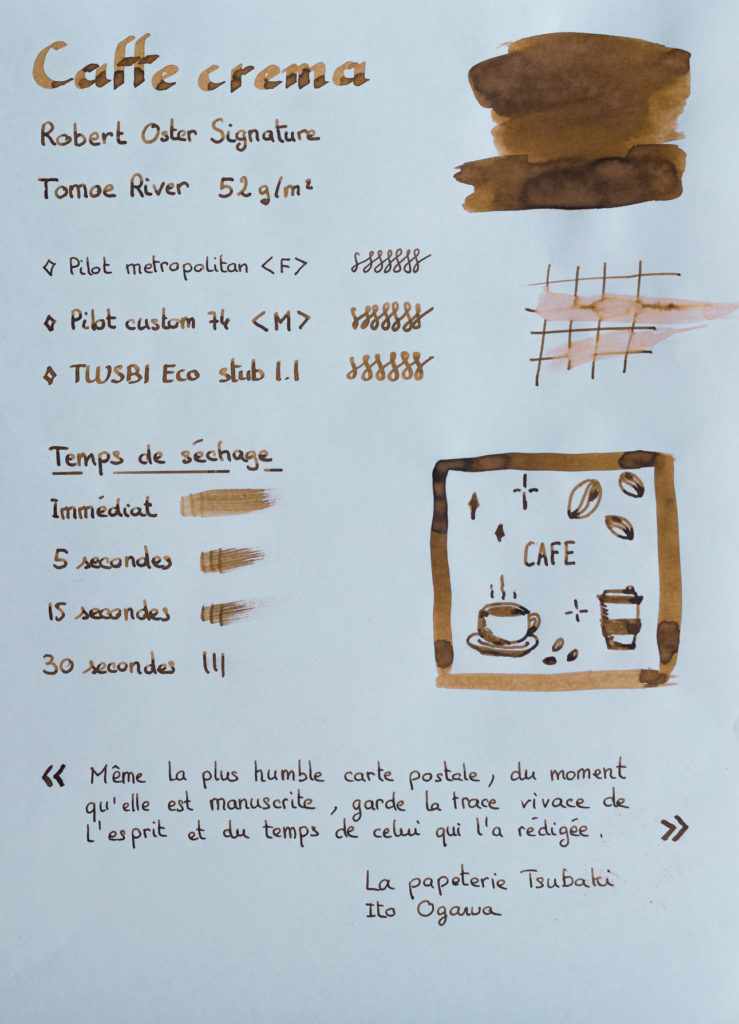 Caffe crema
Robert Oster Signature
Tomoe River 52 g/m²
◇ Pilot metropolitan <F>
◇ Pilot custom 74 <M>
◇ TWSBI Eco stub 1.1
Temps de séchage
Immédiat
5 secondes
15 secondes
30 secondes
CAFE
« Même la plus humble carte postale, du moment
qu'elle est manuscrite, garde la trace vivace de
l'esprit et du temps de celui qui l'a rédigée. »
La papeterie Tsubaki
Ito Ogawa